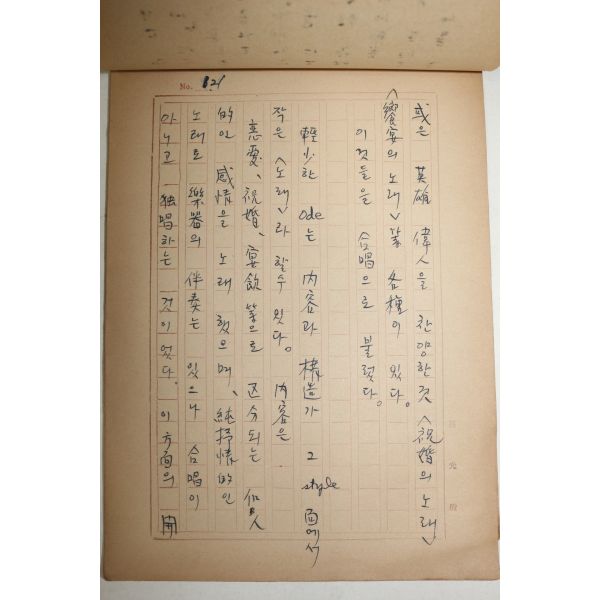 No. 121
或은 英雄 偉人을 찬양한것 <祝婚의 노래>
<饗宴의 노래> 等 各種이 있다.
이것들을 合唱으로 불렀다.
輕少한 ode는 内容과 構造가 그 style 面에서
작은 <노래>라 할수 있다. 内容은
恋愛、祝婚、宴飮 等으로 区分되는 個人
的인 感情을 노래했으며, 純抒情的인
노래로 樂器의 伴奏는 있으나 合唱이
아니고 独唱하는 것이었다. 이 方面의 開